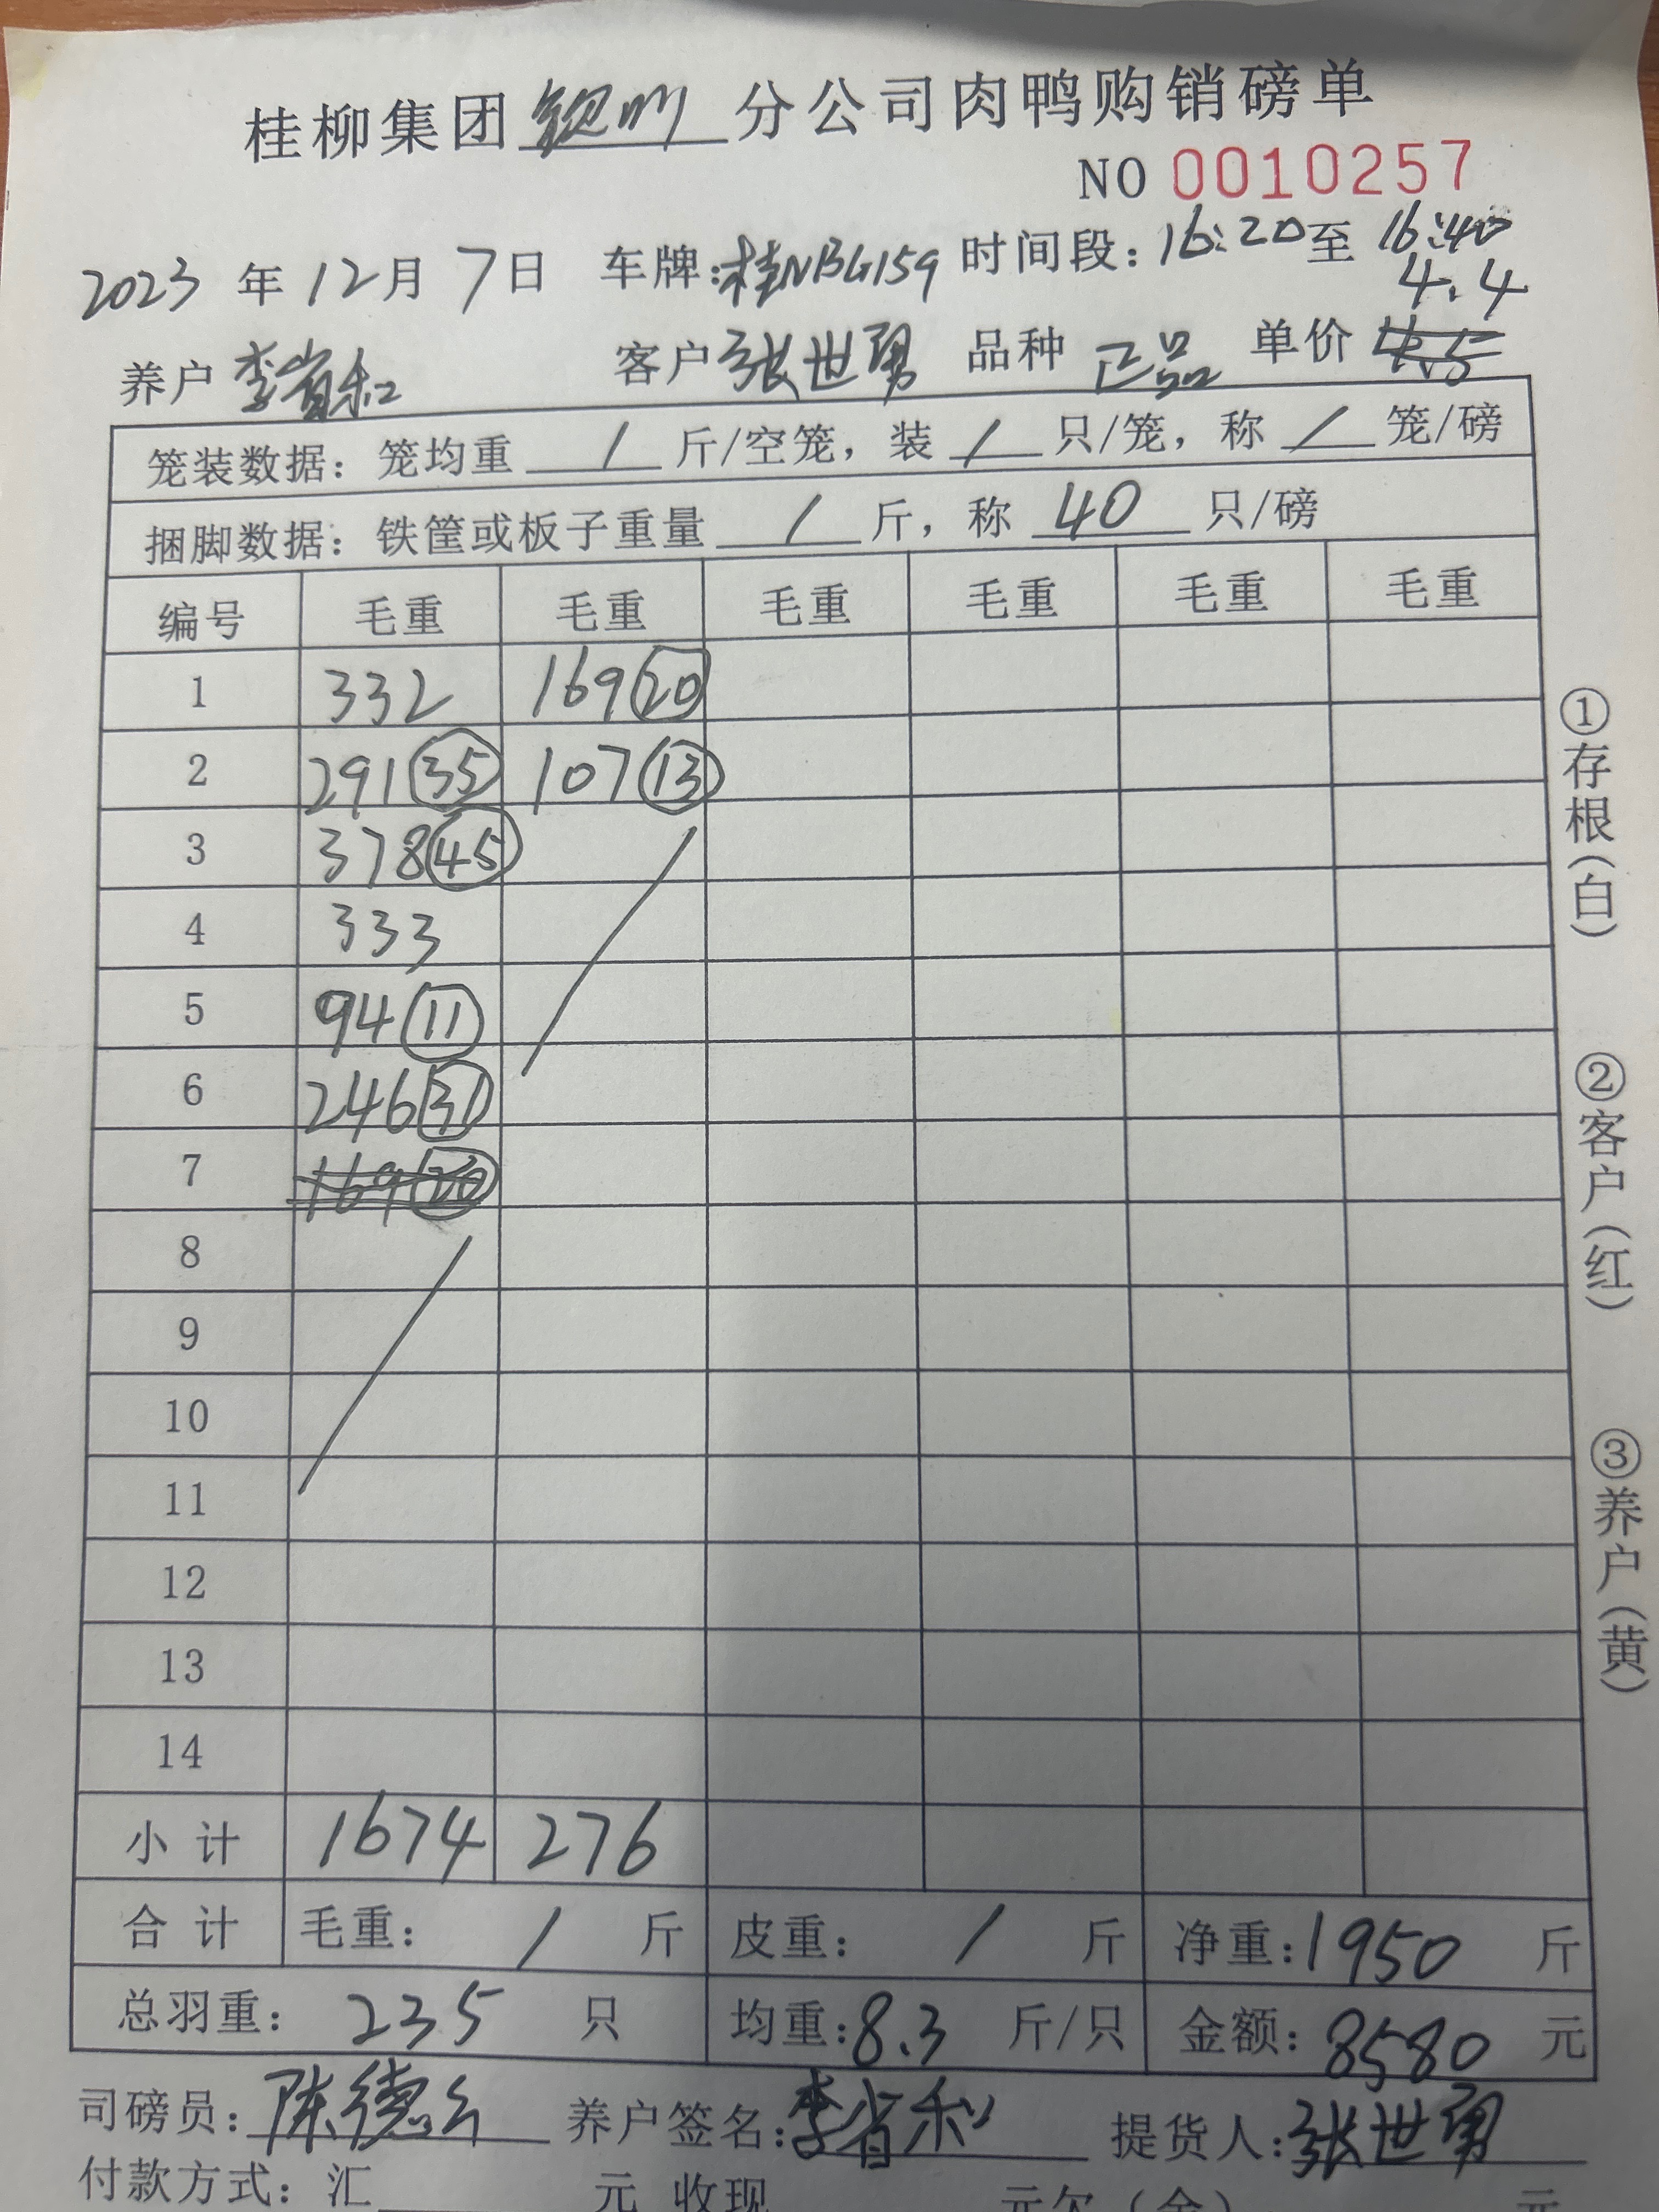 桂柳集团钦州分公司肉鸭购销磅单
NO 0010257
2023年12月7日 车牌:桂NBG159 时间段:16:20至16:40
4.4
养户 李省和 客户 张世勇 品种 正品 单价 4.5
笼装数据:笼均重 / 斤/空笼,装 / 只/笼,称 / 笼/磅
捆脚数据:铁筐或板子重量 / 斤,称 40 只/磅
编号 毛重 毛重 毛重 毛重 毛重 毛重
1 332 169 20
2 291 35 107 13
3 378 45
4 333
5 94 11
6 246 31
7 169 20
8
9
10
11
12
13
14
小计 1674 276
合计 毛重: / 斤 皮重: / 斤 净重:1950 斤
总羽重: 235 只 均重:8.3 斤/只 金额:8580 元
司磅员:陈德 养户签名:李省和 提货人:张世勇
付款方式:汇 元 收现 元欠(余) 元
①存根(白)
②客户(红)
③养户(黄)